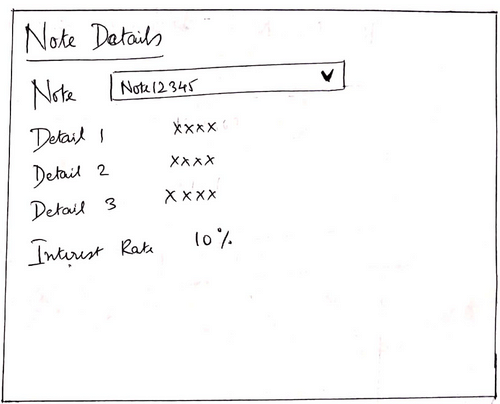 Note Details
Note Note12345
Detail 1 xxxx
Detail 2 xxxx
Detail 3 xxxx
Interest Rate 10%